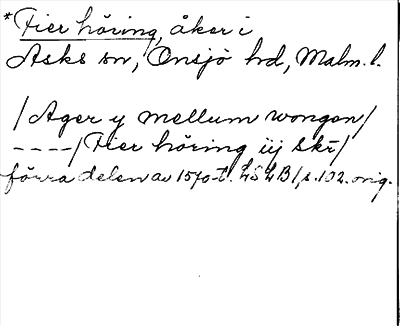 *Fier höring, åker i
Asks sn, Onsjö hd, Malm. l.
/Ager y mellum wongen/
----/Fier höring iij skr/
förra delen av 1570-t. LSLB/, s. 102. orig.